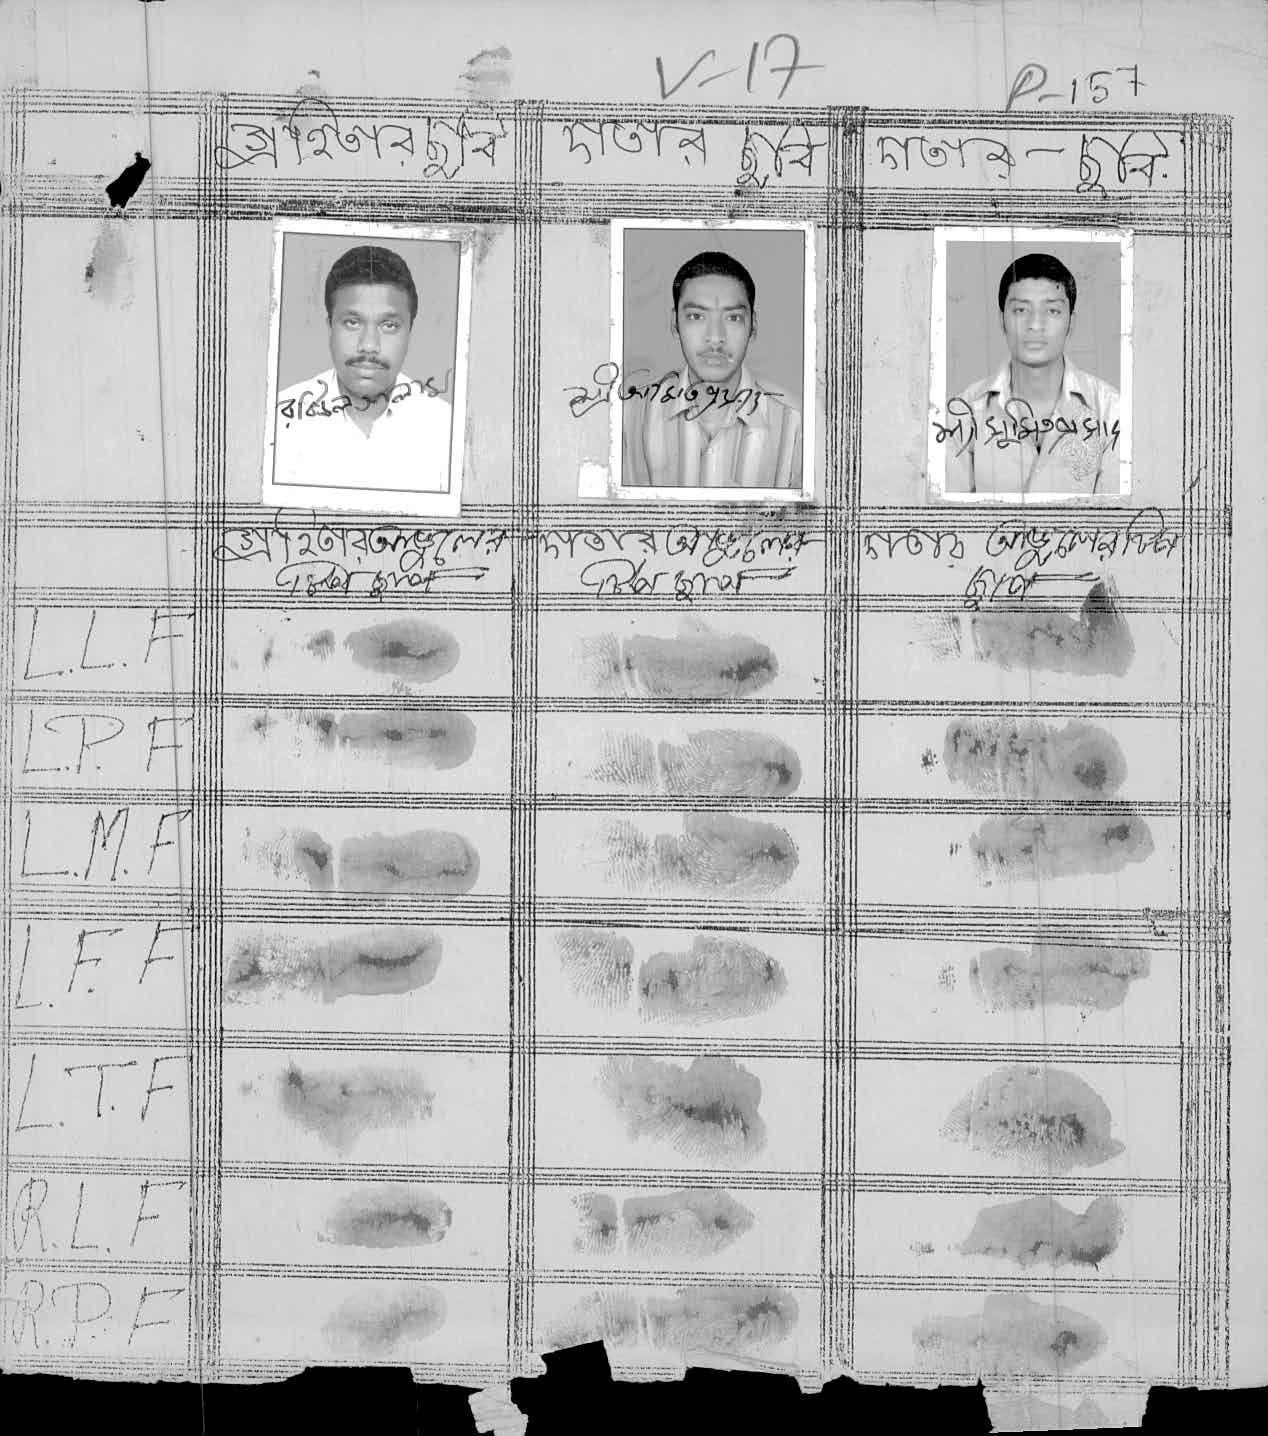 V-17
P-157
গ্রহিতার ছবি
দাতার ছবি
দাতার - ছবি.
রবিউল আলাম
শ্রী অমিত প্রসাদ
শ্রী সুমিত প্রসাদ
গ্রহিতার আঙ্গুলের
টিপ ছাপ
দাতার আঙ্গুলের
টিপ ছাপ
দাতার আঙ্গুলের টিপ
ছাপ
L.L.F
L.P.F
L.M.F
L.F.F
L.T.F
R.L.F
R.P.F